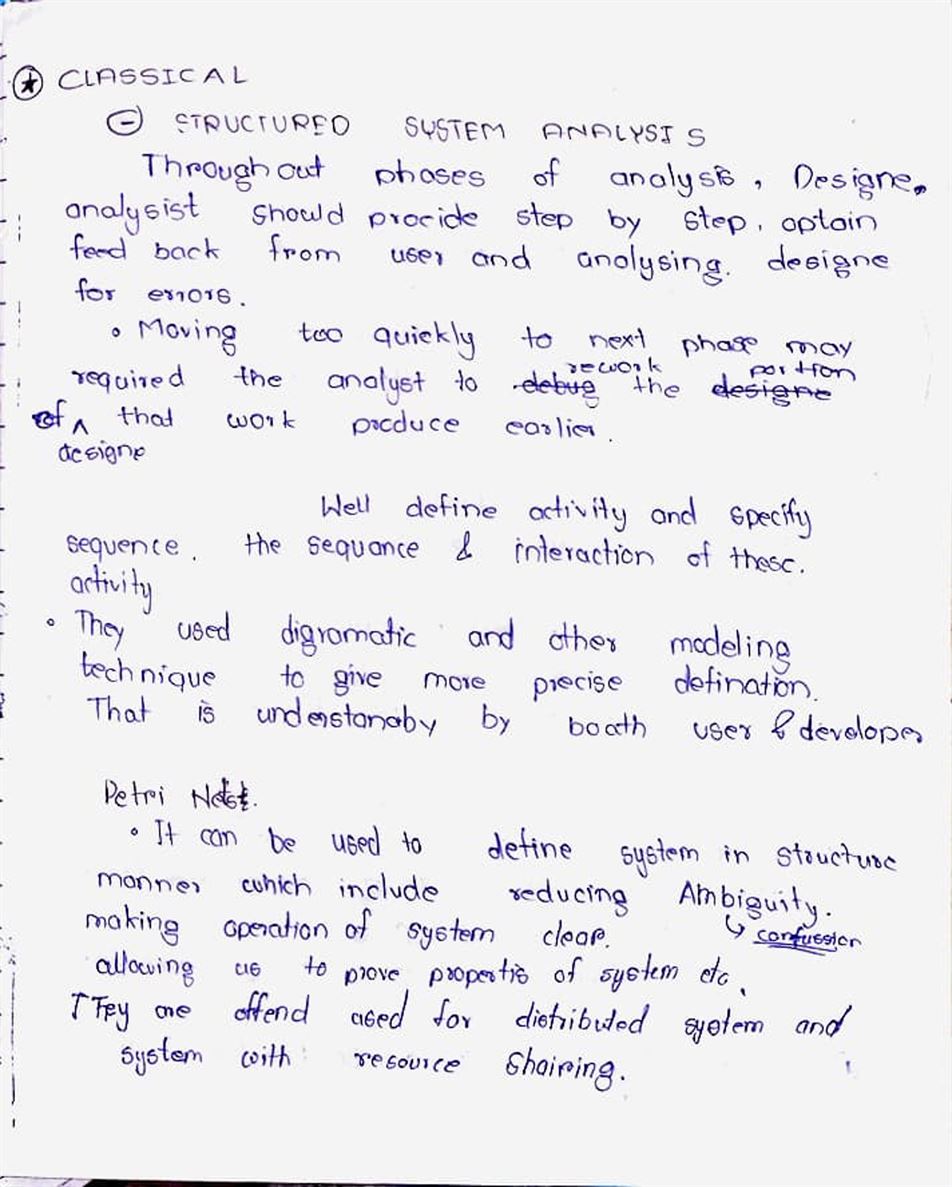 CLASSICAL
STRUCTURED SYSTEM ANALYSIS
Through out phases of analysis, Designe,
analysist should procide step by step, optain
feed back from user and analysing. designe
for errors.
• Moving too quickly to next phase may
rework portion
required the analyst to debug the designe
of ^ that work produce earlier.
designe
Well define activity and specify
sequence. the sequance & interaction of these.
activity
• They used digramatic and other modeling
technique to give more precise defination.
That is understanaby by boath user & developer
Petri Nets.
• It can be used to define system in structure
manner which include reducing Ambiguity.
making operation of system clear. ↳ confussion
allowing us to prove propertis of system etc.
They are offend used for distributed system and
system with resource Shairing.